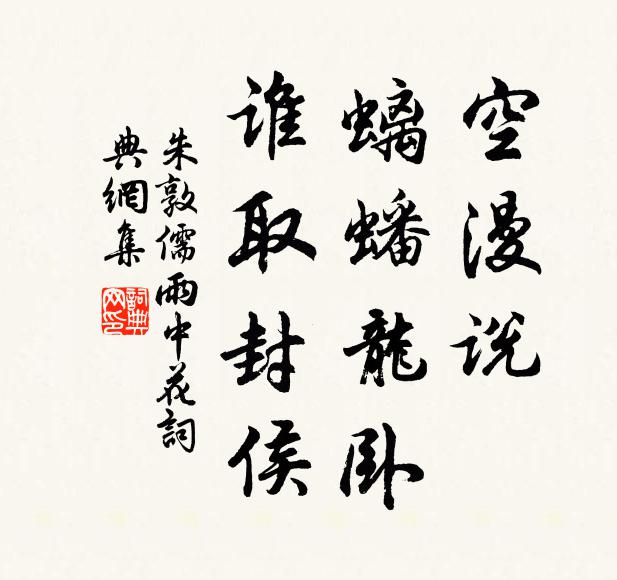 空漫说
螭蟠龍卧
谁取封侯
朱敦儒雨中花詞
典網集
詞典網印